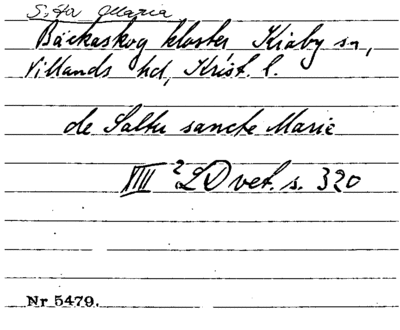 S:ta Maria
Bäckaskog kloster Kiaby sn,
Villands hd, Krist. l.
de Saltu sancte Marie
VIII ² LD vet. s. 320
Nr 5479.